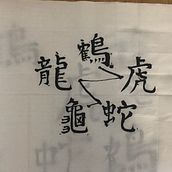 鶴
龍 虎
龜 蛇